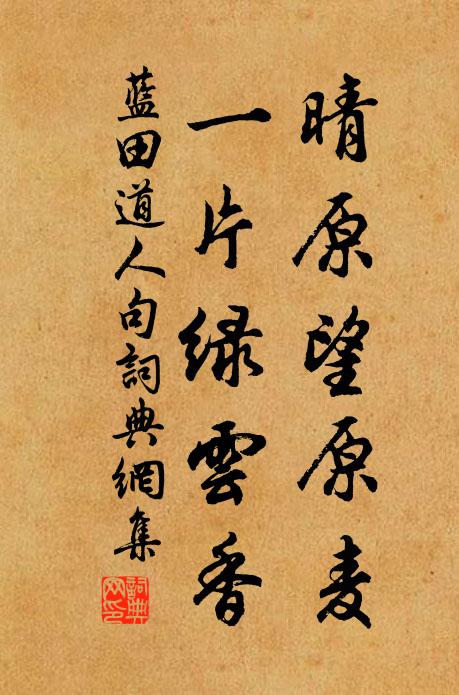 晴原望原麦
一片绿雲香
蓝田道人句詞典網集
詞典網印